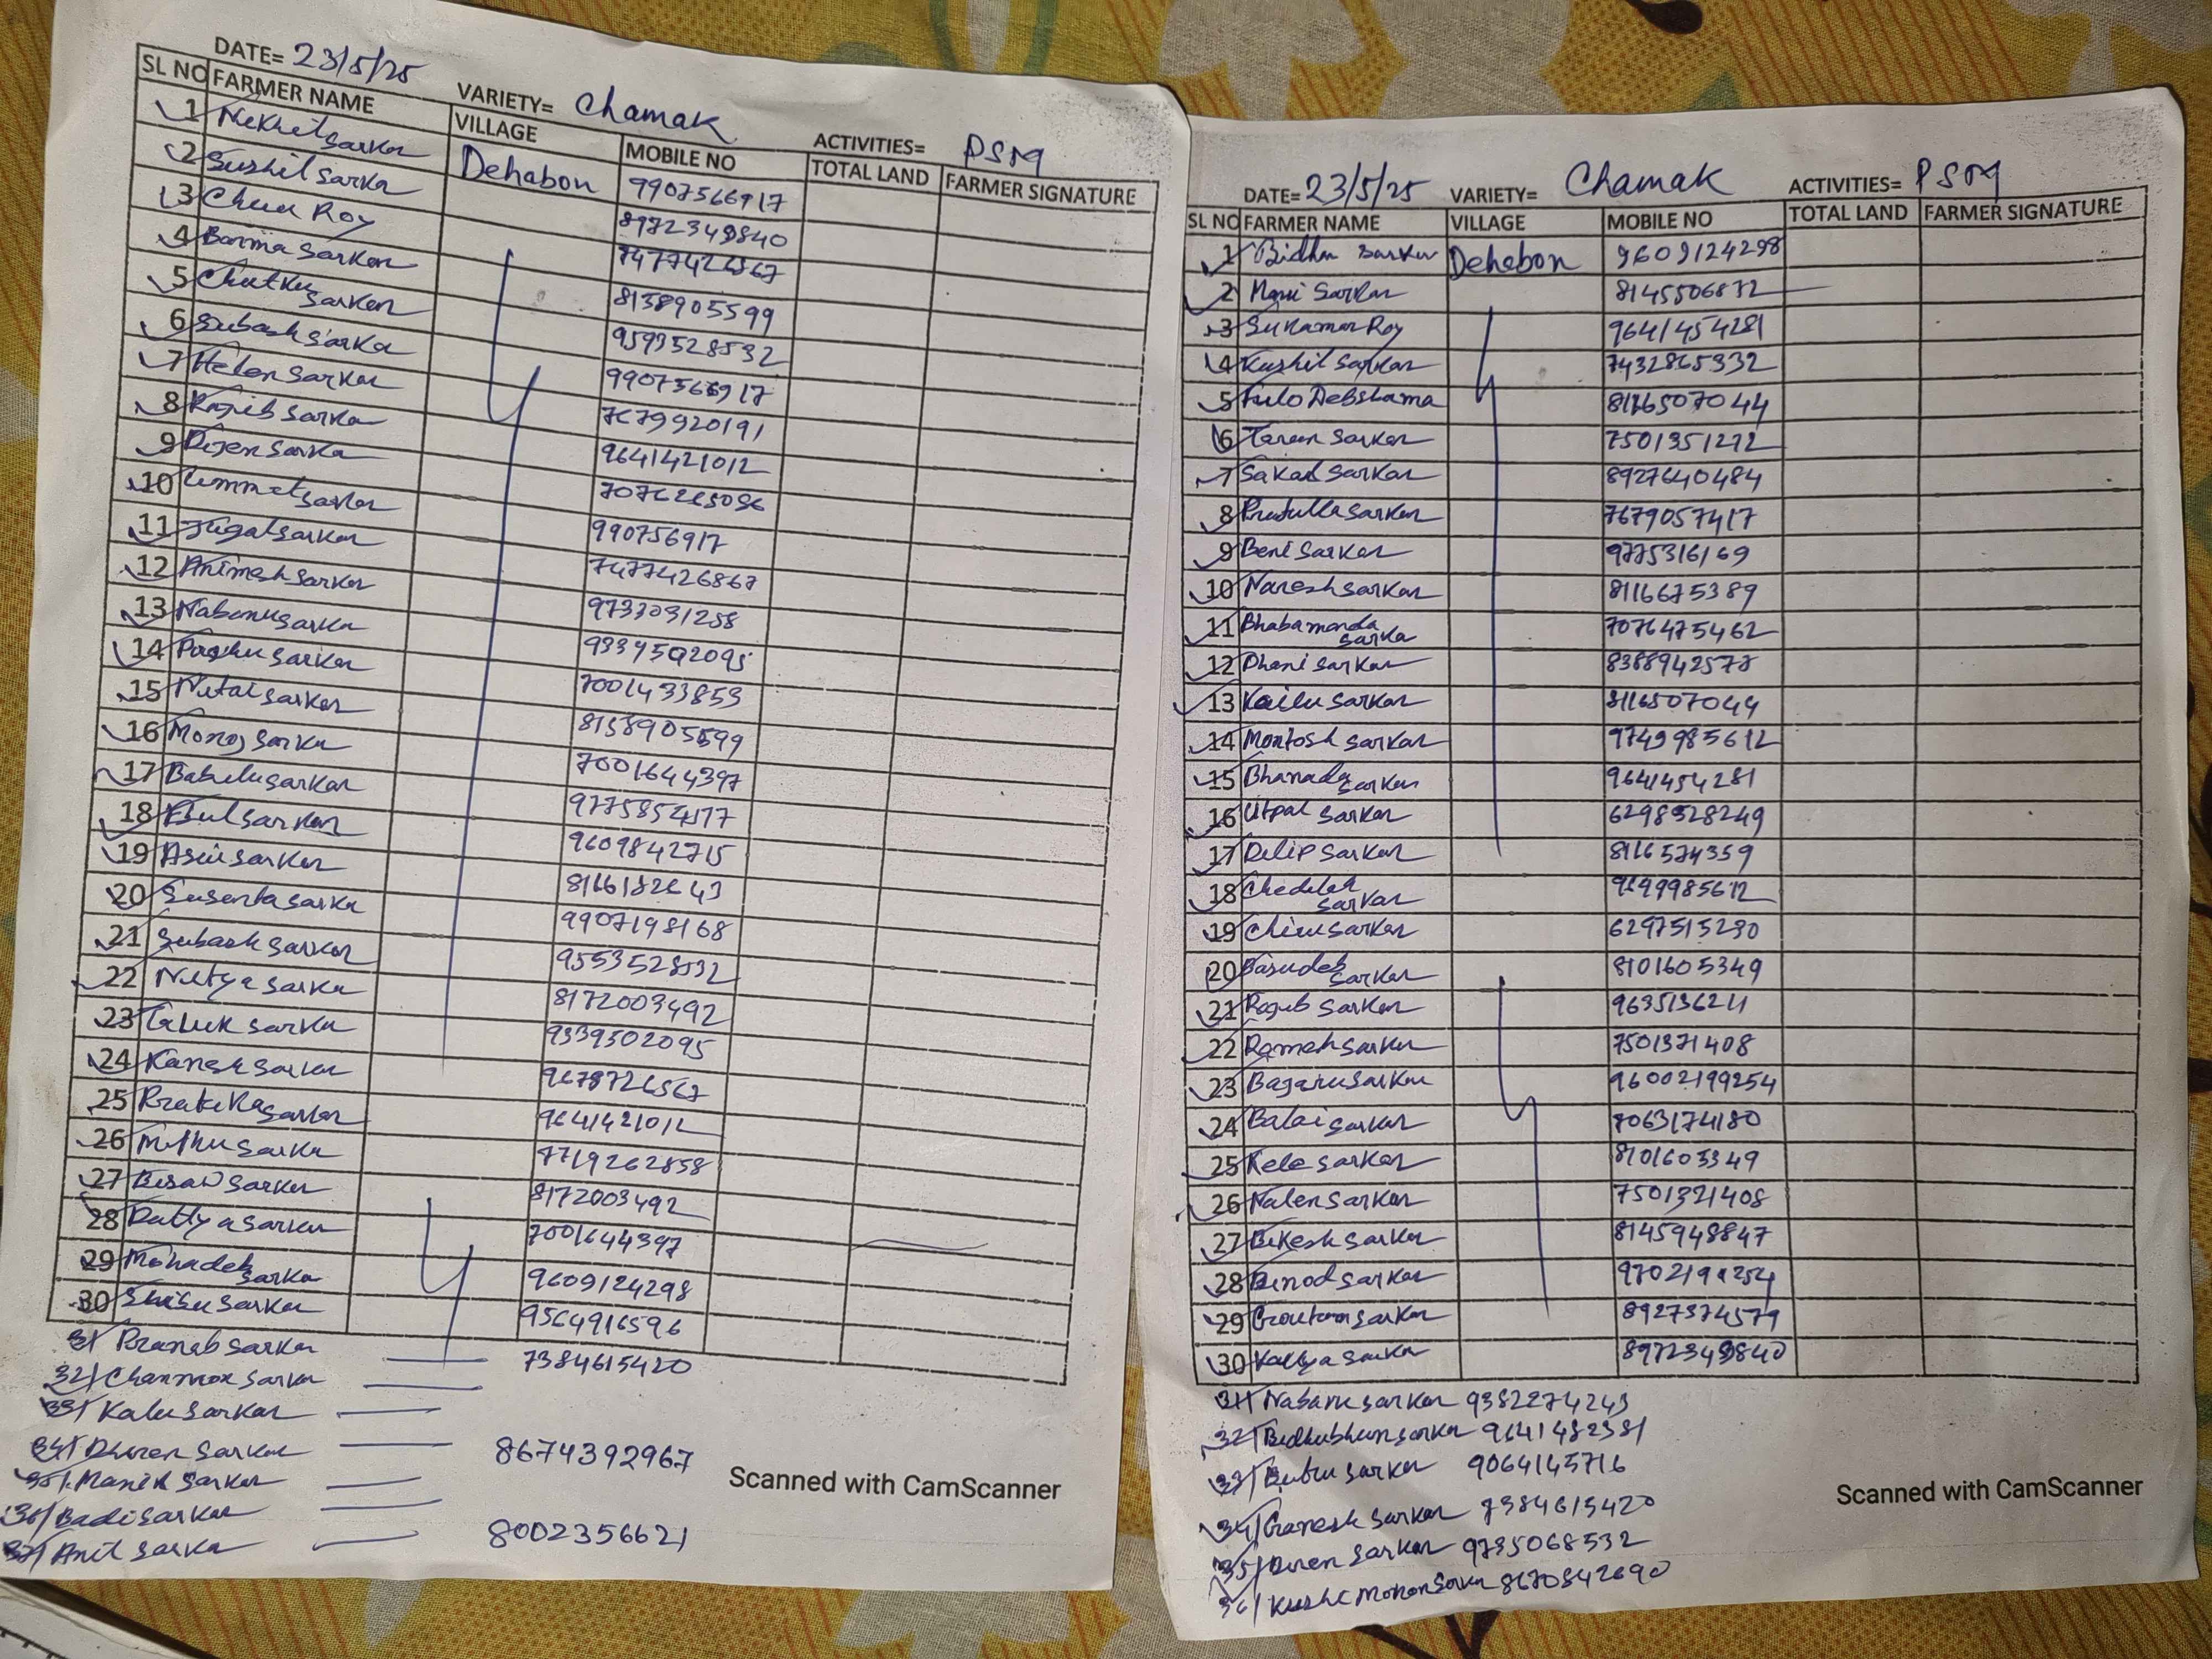 DATE= 23/5/25 VARIETY= Chamak ACTIVITIES= PSM
SL NO FARMER NAME VILLAGE MOBILE NO TOTAL LAND FARMER SIGNATURE
1 Sarkar Dehabon 9907566917
2 Sushil Sarka 8972349840
3 Roy 7477426867
4 Barma Sarkar 8138905599
5 Chutku Sarkar 9593528532
6 Subash Sarka 9907566917
7 Helen Sarkar 7679920191
8 Rajib Sarka 9641421012
9 Dijen Sarka 7076265096
10 Sarkar 990756917
11 Jugal Sarkar 7477426867
12 Animesh Sarkar 9733031258
13 Nabanu Sarka
14 Sarkar 7001433853
15 Nitai Sarkar 8158905599
16 Monoj Sarka 7001644397
17 Babulu Sarkar 9775854577
18 Sarkar 9609842715
19 Sarkar 8116182643
20 Susenta Sarka 9907198168
21 Subash Sarkar 9553528532
22 Nitya Sarka 8172003492
23 Sarka 9339502095
24 Kanesh Sarkar 9678726567
25 Sarkar 9641421012
26 Mithu Sarka 7719262858
27 Sarkar 8172003492
28 Sarkar 7001644397
29 Mohadeb Sarka 9609124298
30 Shibu Sarkar 9564916596
31) Pranab Sarkar 7384615420
32) Sarkar
33) Kalu Sarkar
34) Dhiren Sarkar 8674392967
35) Manik Sarkar
36) Badi Sarkar
37) Anil Sarka 8002356621
Scanned with CamScanner
DATE= 23/5/25 VARIETY= Chamak ACTIVITIES= PSM
SL NO FARMER NAME VILLAGE MOBILE NO TOTAL LAND FARMER SIGNATURE
1 Bidhan Sarkar Dehabon 9609124298
2 Sarkar 8145506832
3 Sukamar Roy 9641454281
4 Kushil Sarkar 7432865332
5 Fulo Debshama 8116507044
6 Sarkar 7501351272
7 Sakal Sarkar 8927640484
8 Prafulla Sarkar 7679057417
9 Beni Sarkar 9775316169
10 Naresh Sarkar 8116675389
11 Bhabananda Sarka 7076475462
12 Dhani Sarkar 8388942577
13 Kailu Sarkar 8116507044
14 Montosh Sarkar 9749985612
15 Bhanada Sarkar 9641454281
16 Utpal Sarkar 6298928249
17 Dilip Sarkar 8116574359
18 Sarkar
19 Sarkar 6297515230
20 Basudeb Sarkar 8101605349
21 Rajib Sarkar 9635136211
22 Ramesh Sarkar 7501371408
23 Sarkar 96002199254
24 Balai Sarkar 7063174180
25 Kele Sarkar 8101605349
26 Nalen Sarkar 7501321408
27 Bikesh Sarkar 8145948847
28 Binod Sarkar
29 Goutam Sarkar 8927374579
30 Sarkar 8972349840
31) Nabanu Sarkar 9382274243
32) Bidhubhun Sarkar 9641482381
33) Sarkar 9064145716
34) Ganesh Sarkar 7384615420
35) Diren Sarkar 9735068532
36) Mohon Sarkar 8670842690
Scanned with CamScanner